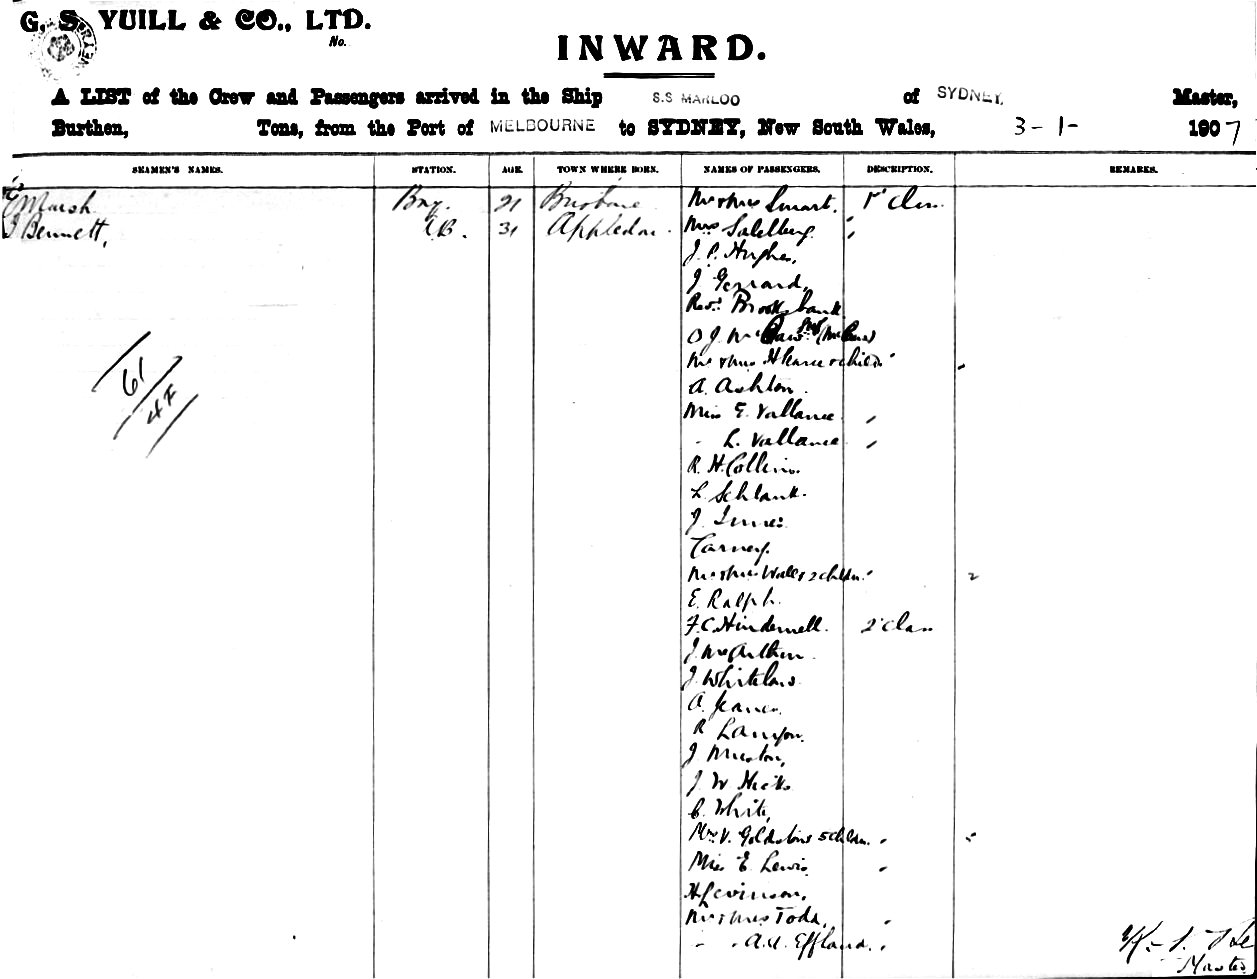 G. S. YUILL & CO., LTD.
No.
INWARD.
A LIST of the Crew and Passengers arrived in the Ship S.S MARLOO of SYDNEY, Master,
Burthen, Tons, from the Port of MELBOURNE to SYDNEY, New South Wales, 3-1- 1907
SEAMEN'S NAMES. STATION. AGE. TOWN WHERE BORN. NAMES OF PASSENGERS. DESCRIPTION. REMARKS.
Marsh 21 Brisbane Mr & Mrs Smart.
J Bennett, 31 Appledore. Mrs
J. P. Hughes,
J Gerrard,
Revd. Brooksbank
O J
Mr & Mrs & child
A. Ashton
Miss E. Vallance
L. Vallance
R. H. Collins
L Schlank.
J. Innes
Carney.
Mr & Mrs Wall & 2 childn. 2
E. Ralph.
F. C. Hindemell. 2 class
J. McArthur
J. Whitelaw.
A. Jeanes
R Lamyon.
J Muston,
J. W Hicks
C. White,
Mrs V. Goldstone 5 childn.
Miss E. Lewis
H Levinson,
Mr & Mrs Todd,
Effland.
61
Master